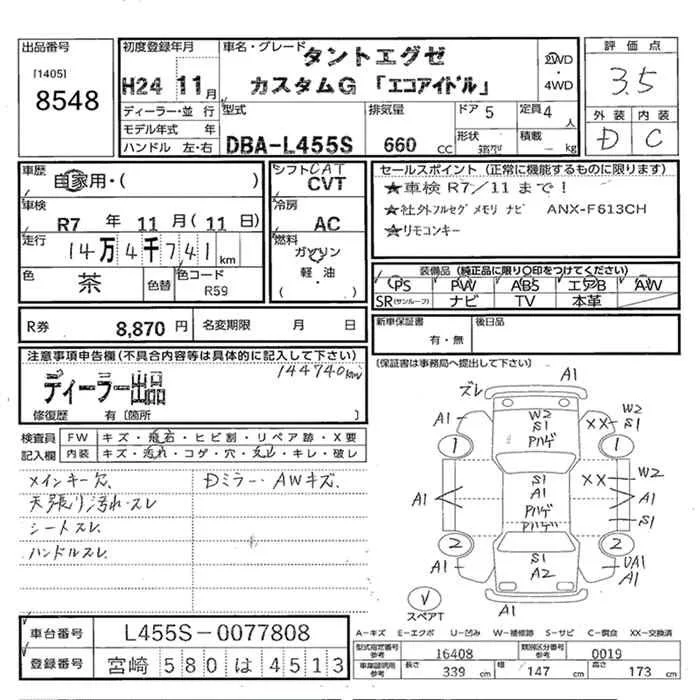 出品番号
[1405]
8548
初度登録年月
H24 11月
車名・グレード
タントエグゼ
カスタムG 「エコアイドル」
2WD
・
4WD
評価点
3.5
外装 内装
D C
ディーラー・並行
モデル年式 年
ハンドル 左・右
型式
DBA-L455S
排気量
660 CC
ドア 5
形状 箱型
定員 4人
積載 - kg
車歴
自家用・( )
車検
R7 年 11 月 ( 11 日)
走行
14万4千741 km
色
茶
色替
色コード
R59
シフト CAT
CVT
冷房
AC
燃料
ガソリン
軽・油
( )
セールスポイント (正常に機能するものに限ります)
★車検 R7/11 まで!
★社外フルセグメモリナビ ANX-F613CH
★リモコンキー
装備品 (純正品に限り〇印をつけてください)
PS PW ABS エアB AW
SR(サンルーフ) ナビ TV 本革
R券 8,870 円 名変期限 月 日
新車保証書
有・無
後日品
(保証書は事務局へ提出して下さい)
注意事項申告欄(不具合内容等は具体的に記入して下さい)
144740km
ディーラー出品
修復歴 有〔箇所 〕
検査員
記入欄
FW キズ・飛石・ヒビ割・リペア跡・X要
内装 キズ・汚れ・コゲ・穴・スレ・キレ・破レ
メインキー欠、 Dミラー・AWキズ、
天張り汚れ・スレ
シートスレ、
ハンドルスレ、
ズレ A1
A1 W2 S1 Pハゲ XX W2 S1
1 1
A1 S1 A1 Pハゲ Pハゲ XX W2 A1 S1
2 2
A1 S1 A2 UA1 A1
スペアT
A1
車台番号 L455S-0077808
登録番号 宮崎 580 は 4513
A-キズ E-エクボ U-凹み W-補修跡 S-サビ C-腐食 XX-交換済
型式指定番号 16408 類別区分番号 0019
車庫証明用参考 長さ 339 cm 幅 147 cm 高さ 173 cm